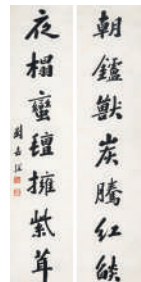 朝鑪獸炭騰紅燄
夜榻蠻氊擁紫茸
劉嘉琛